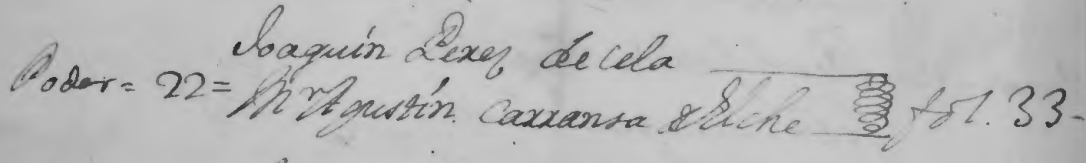 Poder = 22 = Joaquín Perez de cela
Mr Agustín Carransa Elche fol. 33-